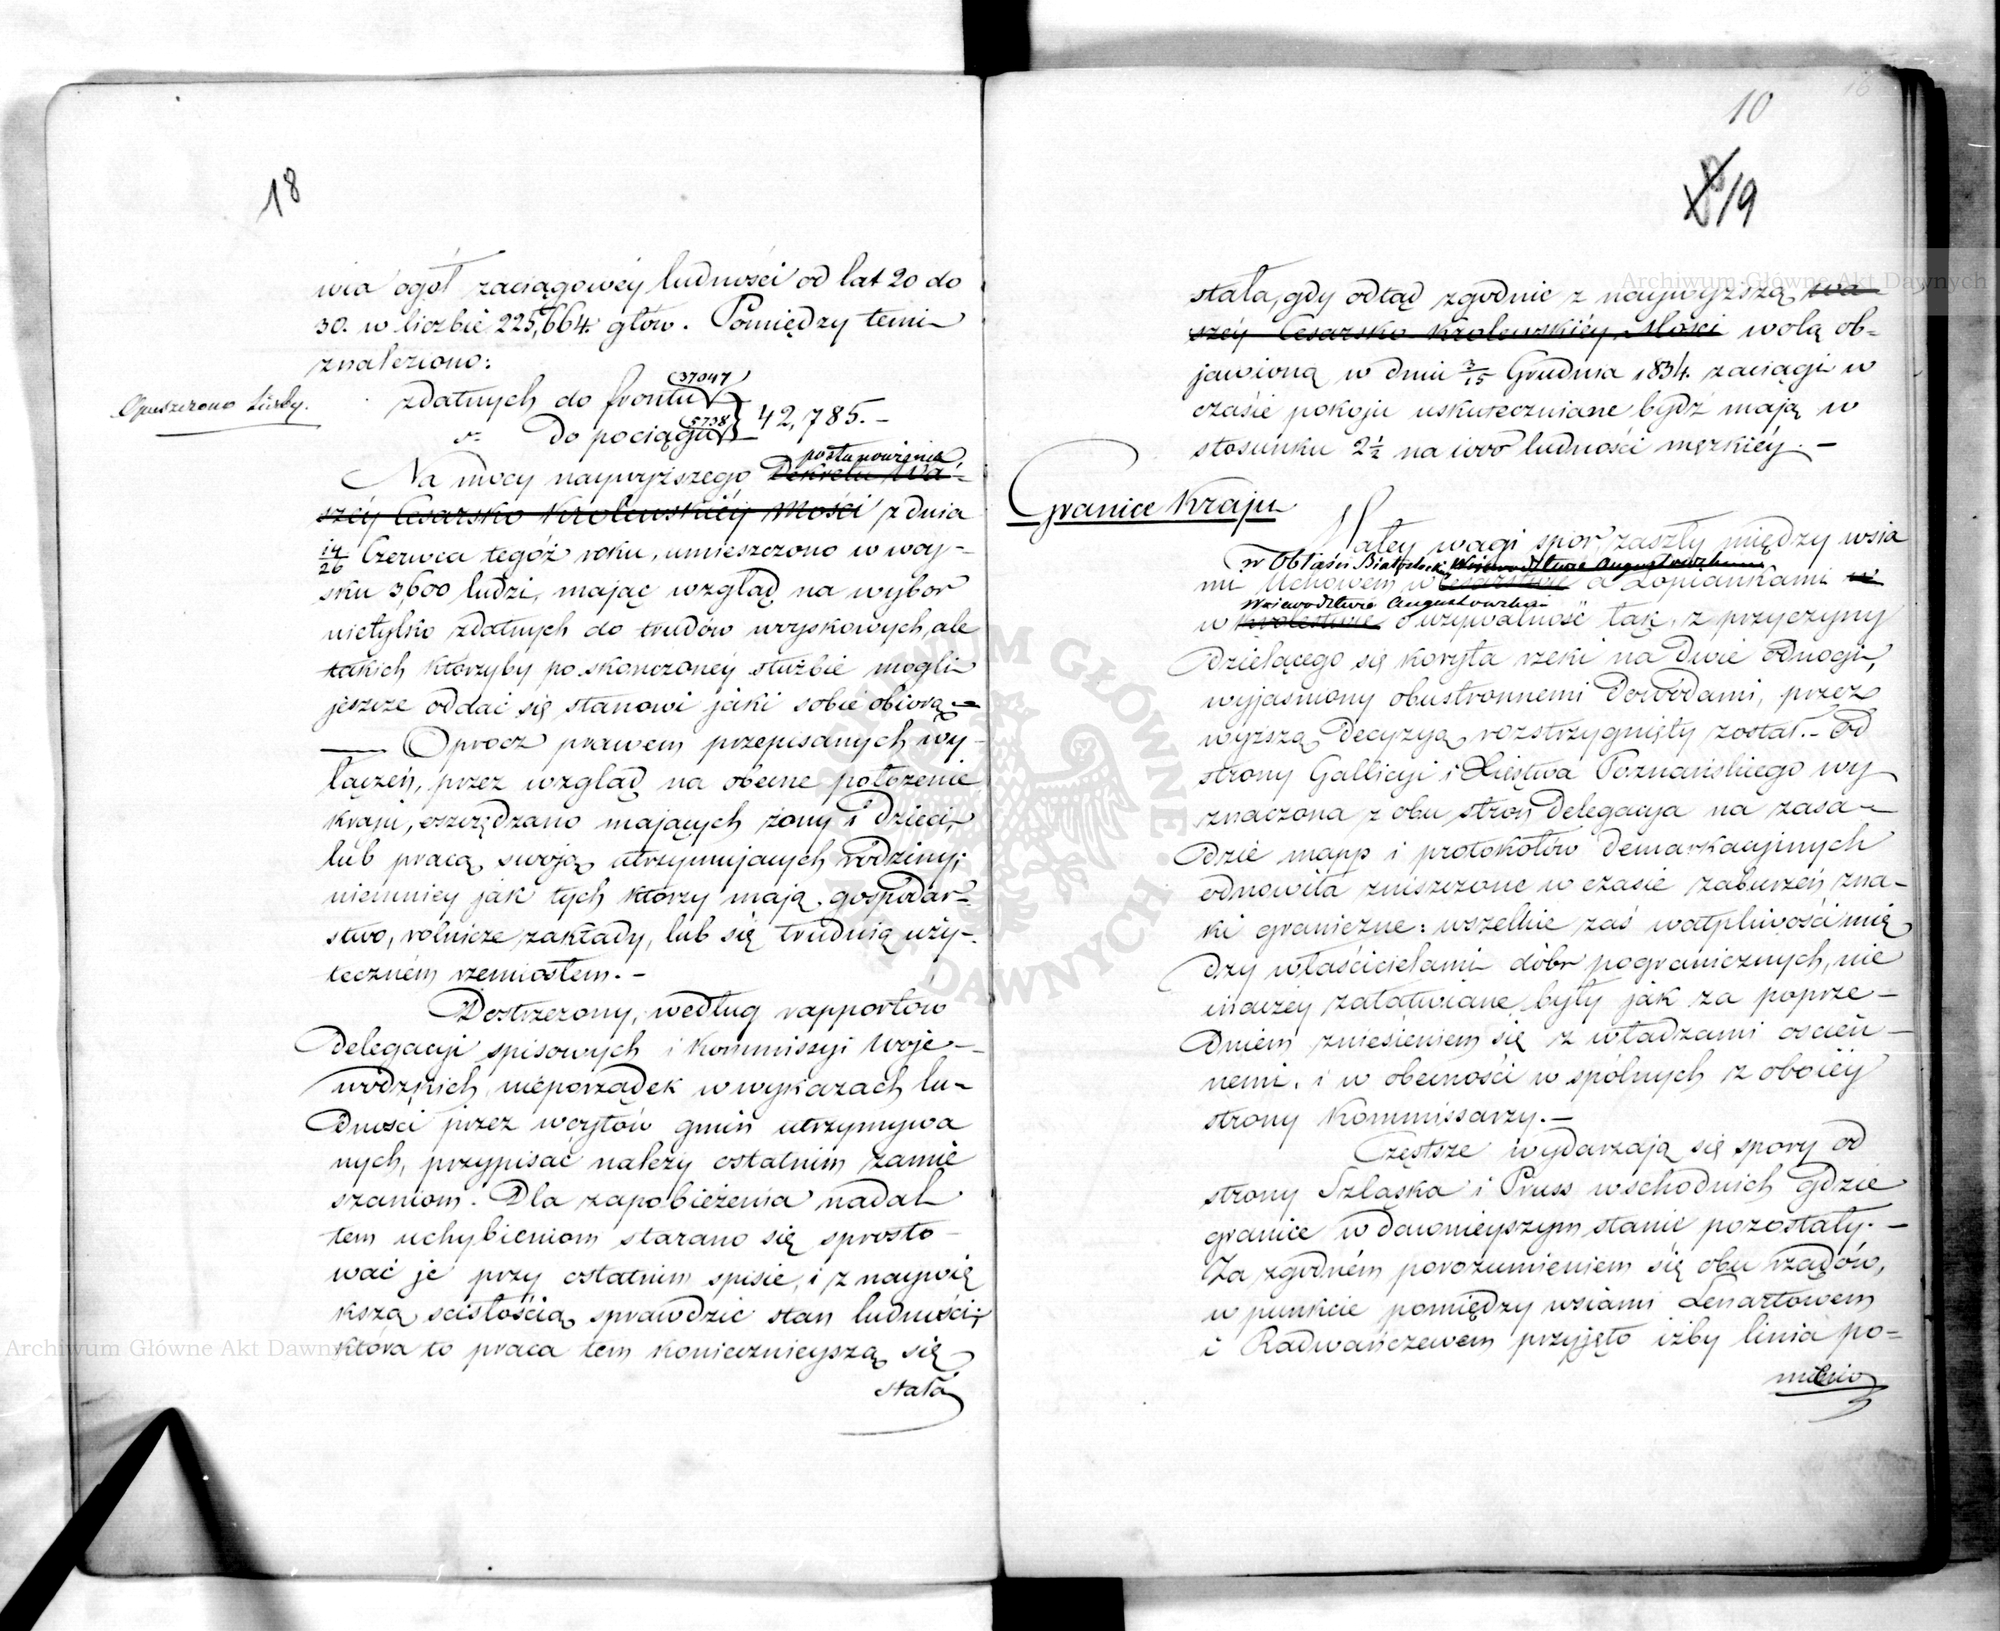 18
wia ogół zaciągowéy ludności od lat 20 do
30. w liczbie 225,664 głów. Pomiędzy temi
znaleziono:
zdatnych do frontu 37047
do pociągu 5738 } 42,785.-
Opuszczono liczby.
Na mocy naywyższego ~~Dekretu Wa-~~ postanowienia
~~széy Cesarsko Krolewskiéy Mości~~ z dnia
14/26 Czerwca tegóż roku, umieszczono w woy-
sku 3,600 ludzi, mając wzgląd na wybor
nietylko zdatnych do trudów woyskowych, ale
takich którzyby po skonczonéy służbie mogli
jeszcze oddać się stanowi jaki sobie obiorą.-
— Oprocz prawem przepisanych wy-
łączeń, przez wzgląd na obecne położenie
kraju, oszczędzano mających żony i dzieci,
lub pracą swoją utrzymujących rodziny;
niemniey jak tych którzy mają gospodar-
stwo, rolnicze zakłady, lub się trudnią uży-
teczném rzemiosłem.-
Dostrzeżony, według rapportów
Delegacji spisowych i Kommissyi Woje-
wódzkich, nieporządek w wykazach lu-
dności przez wóytów gmin utrzymywa
nych, przypisać należy ostatnim zamie
szaniom. Dla zapobieżenia nadal
tem uchybieniom starano się sprosto-
wać je przy ostatnim spisie, i z naywię
kszą ścisłością sprawdzić stan ludności;
która to praca tem konieczniejszą się
stała
10
19
stała, gdy odtąd zgodnie z naywyższą ~~Wa-~~
~~széy Cesarsko Krolewskiéy Mości~~ wolą ob-
jawioną w dniu 3/15 Grudnia 1834. zaciągi w
czasie pokoju uskuteczniane bydź mają w
stosunku 2½ na 1000 ludności męzkiéy.-
Granice Kraju
Małey wagi spor, zaszły między wsia
w Obłaści Białostock. ~~Województwie Augustowskim~~
mi Uchowem w ~~Cesarstwie~~ a Łopiankami ~~w~~
Województwie Augustowskim
w ~~Królestwie~~ o używalność łąk, z przyczyny
dzielącego się koryta rzeki na dwie odnogi,
wyjaśniony obustronnemi Dowodami, przez
wyższą Decyzyą rozstrzygnięty został.- Od
strony Gallicyi i Xięstwa Poznańskiego wy
znaczona z obu stron Delegacja na zasa-
dzie mapp i protokołów demarkacyjnych
odnowiła zniszczone w czasie zaburzeń zna-
ki graniczne: wszelkie zaś wątpliwości mię
dzy właścicielami dóbr pogranicznych, nie
inaczéy załatwiane były jak za poprze-
dniem zniesieniem się z władzami ościen-
nemi, i w obecności wspólnych z oboiéy
strony Kommissarzy.-
Częstsze wydarzają się spory od
strony Szląska i Pruss wschodnich gdzie
granice w dawnieyszym stanie pozostały.-
Za zgodném porozumieniem się obu rządów,
w punkcie pomiędzy wsiami Lenartowem
i Radwańczewem przyjęto iżby linia po-
Archiwum Główne Akt Dawnych
Archiwum Główne Akt Dawnych
ARCHIWUM GŁÓWNE AKT DAWNYCH